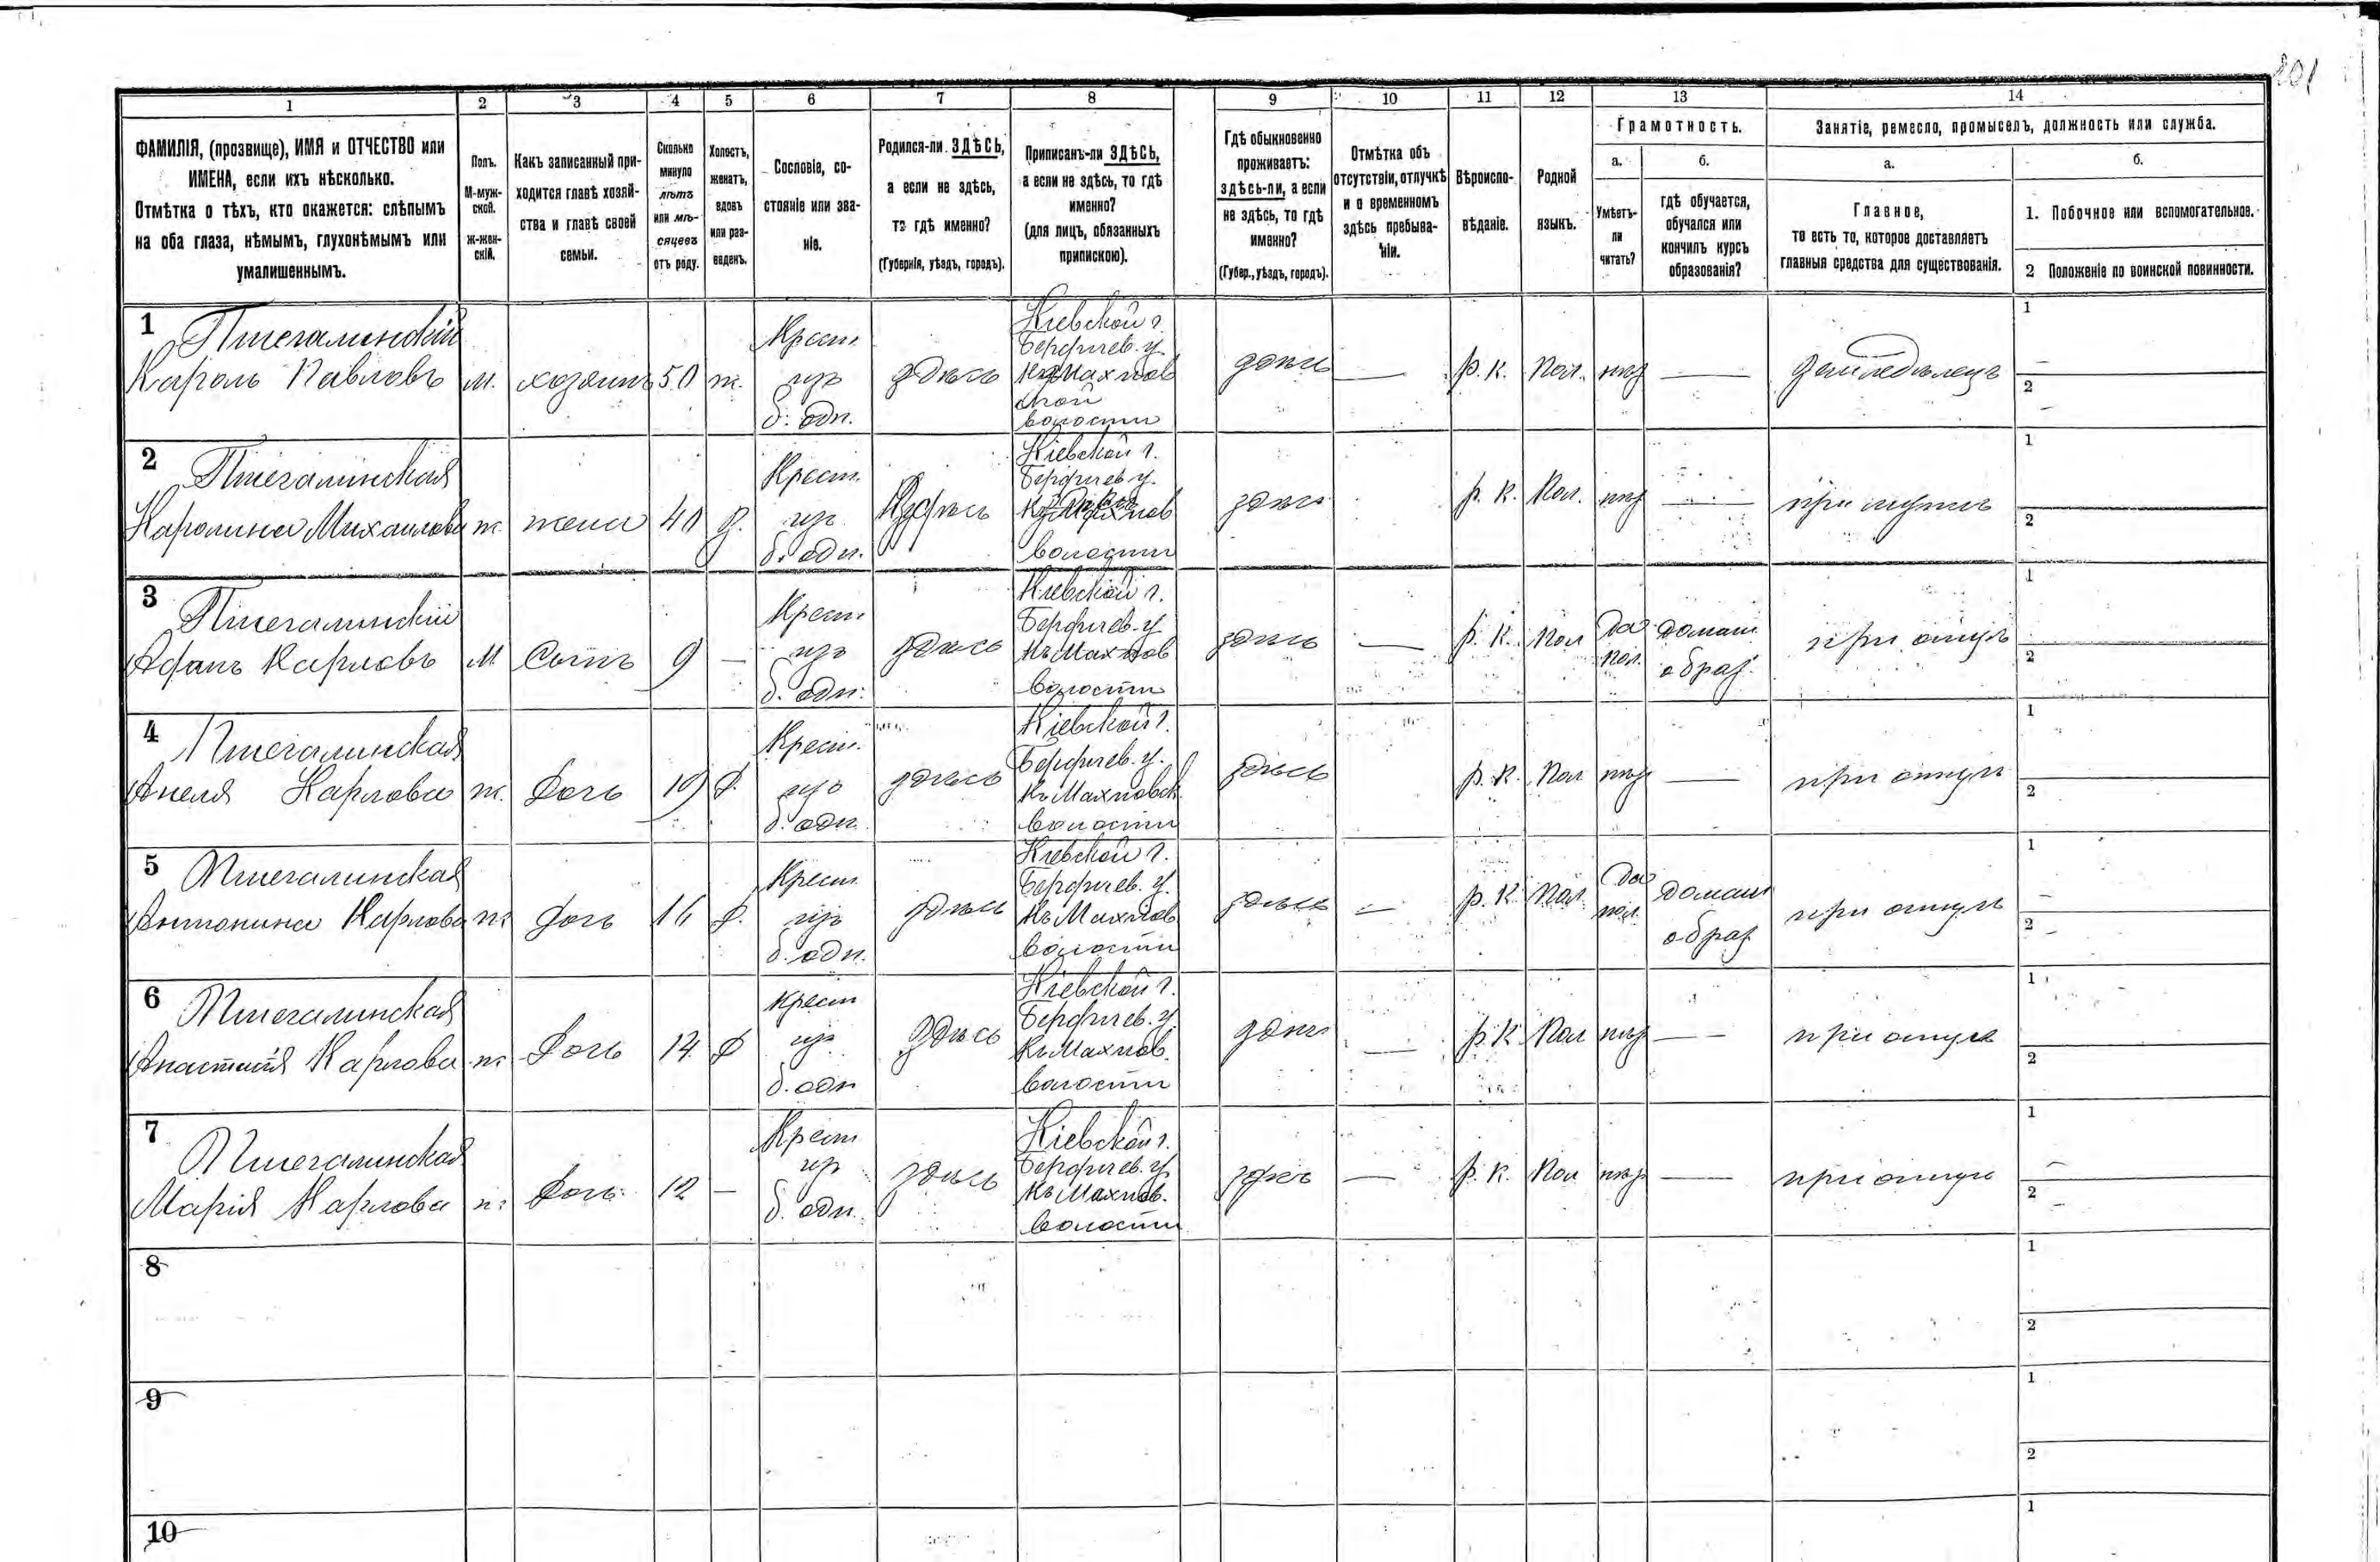 201
1 2 3 4 5 6 7 8 9 10 11 12 13 14
ФАМИЛІЯ, (прозвище), ИМЯ и ОТЧЕСТВО или
ИМЕНА, если ихъ нѣсколько.
Отмѣтка о тѣхъ, кто окажется: слѣпымъ
на оба глаза, нѣмымъ, глухонѣмымъ или
умалишеннымъ.
Полъ.
М-муж-
ской.
ж-жен-
скій.
Какъ записанный при-
ходится главѣ хозяй-
ства и главѣ своей
семьи.
Сколько
минуло
лѣтъ
или мѣ-
сяцевъ
отъ роду.
Холостъ,
женатъ,
вдовъ
или раз-
веденъ.
Сословіе, со-
стояніе или зва-
ніе.
Родился-ли ЗДѢСЬ,
а если не здѣсь,
то гдѣ именно?
(Губернія, уѣздъ, городъ).
Приписанъ-ли ЗДѢСЬ,
а если не здѣсь, то гдѣ
именно?
(для лицъ, обязанныхъ
припискою).
Гдѣ обыкновенно
проживаетъ:
здѣсь-ли, а если
не здѣсь, то гдѣ
именно?
(Губер., уѣздъ, городъ).
Отмѣтка объ
отсутствіи, отлучкѣ
и о временномъ
здѣсь пребыва-
ніи.
Вѣроиспо-
вѣданіе.
Родной
языкъ.
Грамотность.
а.
Умѣетъ-
ли
читать?
б.
гдѣ обучается,
обучался или
кончилъ курсъ
образованія?
Занятіе, ремесло, промыселъ, должность или служба.
а.
Главное,
то есть то, которое доставляетъ
главныя средства для существованія.
б.
1. Побочное или вспомогательное.
2 Положеніе по воинской повинности.
1
Кароль Павловъ
м.
хозяинъ
50
ж.
Крест.
изъ
б. одн.
здѣсь
Кіевской г.
Бердичев. у.
волости
здѣсь
—
р. к.
Пол.
нѣт
—
земледѣлецъ
1
2
2
Каролина Михаилова
ж.
жена
40
Крест.
изъ
б. одн.
здѣсь
Кіевской г.
Бердичев. у.
волости
здѣсь
р. к.
Пол.
нѣт
—
при мужѣ
1
2
3
Адамъ Карловъ
М
Сынъ
9
—
Крест
изъ
б. одн.
здѣсь
Кіевской г.
Бердичев. у
Къ Махнов
волости
здѣсь
—
р. к.
Пол
Да
пол.
домаш.
образ.
при отцѣ
1
2
4
Анеля Карлова
ж.
Дочь
19
Д.
Крест.
изъ
б. одн.
здѣсь
Кіевской г.
Бердичев. у.
Къ Махновск.
волости
здѣсь
р. к.
Пол
нѣт
—
при отцѣ
1
2
5
Антонина Карлова
ж
Дочь
16
Д.
Крест
изъ
б. одн.
здѣсь
Кіевской г.
Бердичев. у.
Къ Махнов
волости
здѣсь
—
р. К
Пол.
Да
пол.
домаш
образ
при отцѣ
1
2
6
Анастасія Карлова
ж
Дочь
14
Д
Крест
изъ
б. одн
здѣсь
Кіевской г.
Бердичев. у.
Къ Махнов.
волости
здѣсь
—
р. К
Пол
нѣт
—
при отцѣ
1
2
7
Марія Карлова
ж
Дочь
12
—
Крест
изъ
б. одн.
здѣсь
Кіевской г.
Бердичев. у.
Къ Махнов.
волости
здѣсь
—
р. к.
Пол
нѣт
—
при отцѣ
1
2
8
1
2
9
1
2
10
1